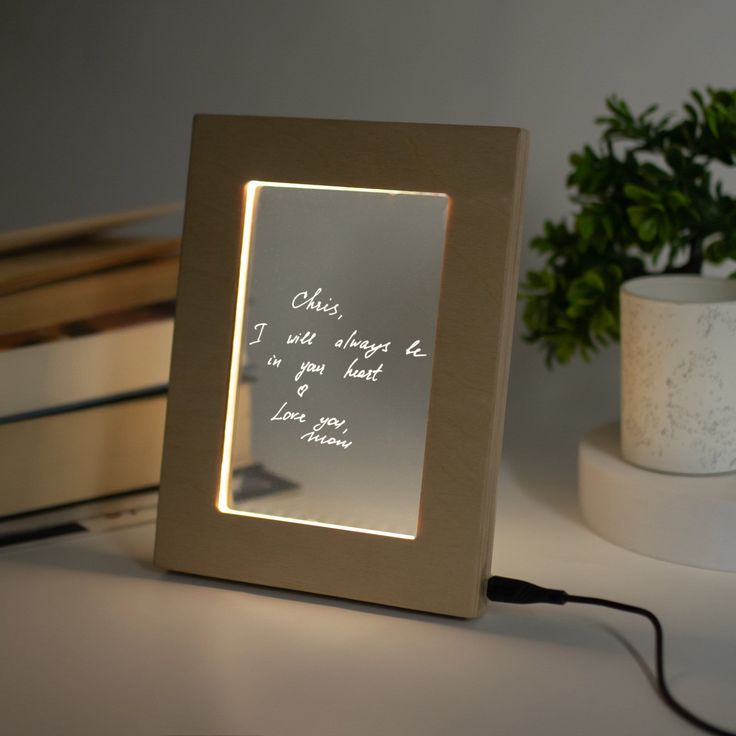 Chris,
I will always be
in your heart
Love you,
Mom